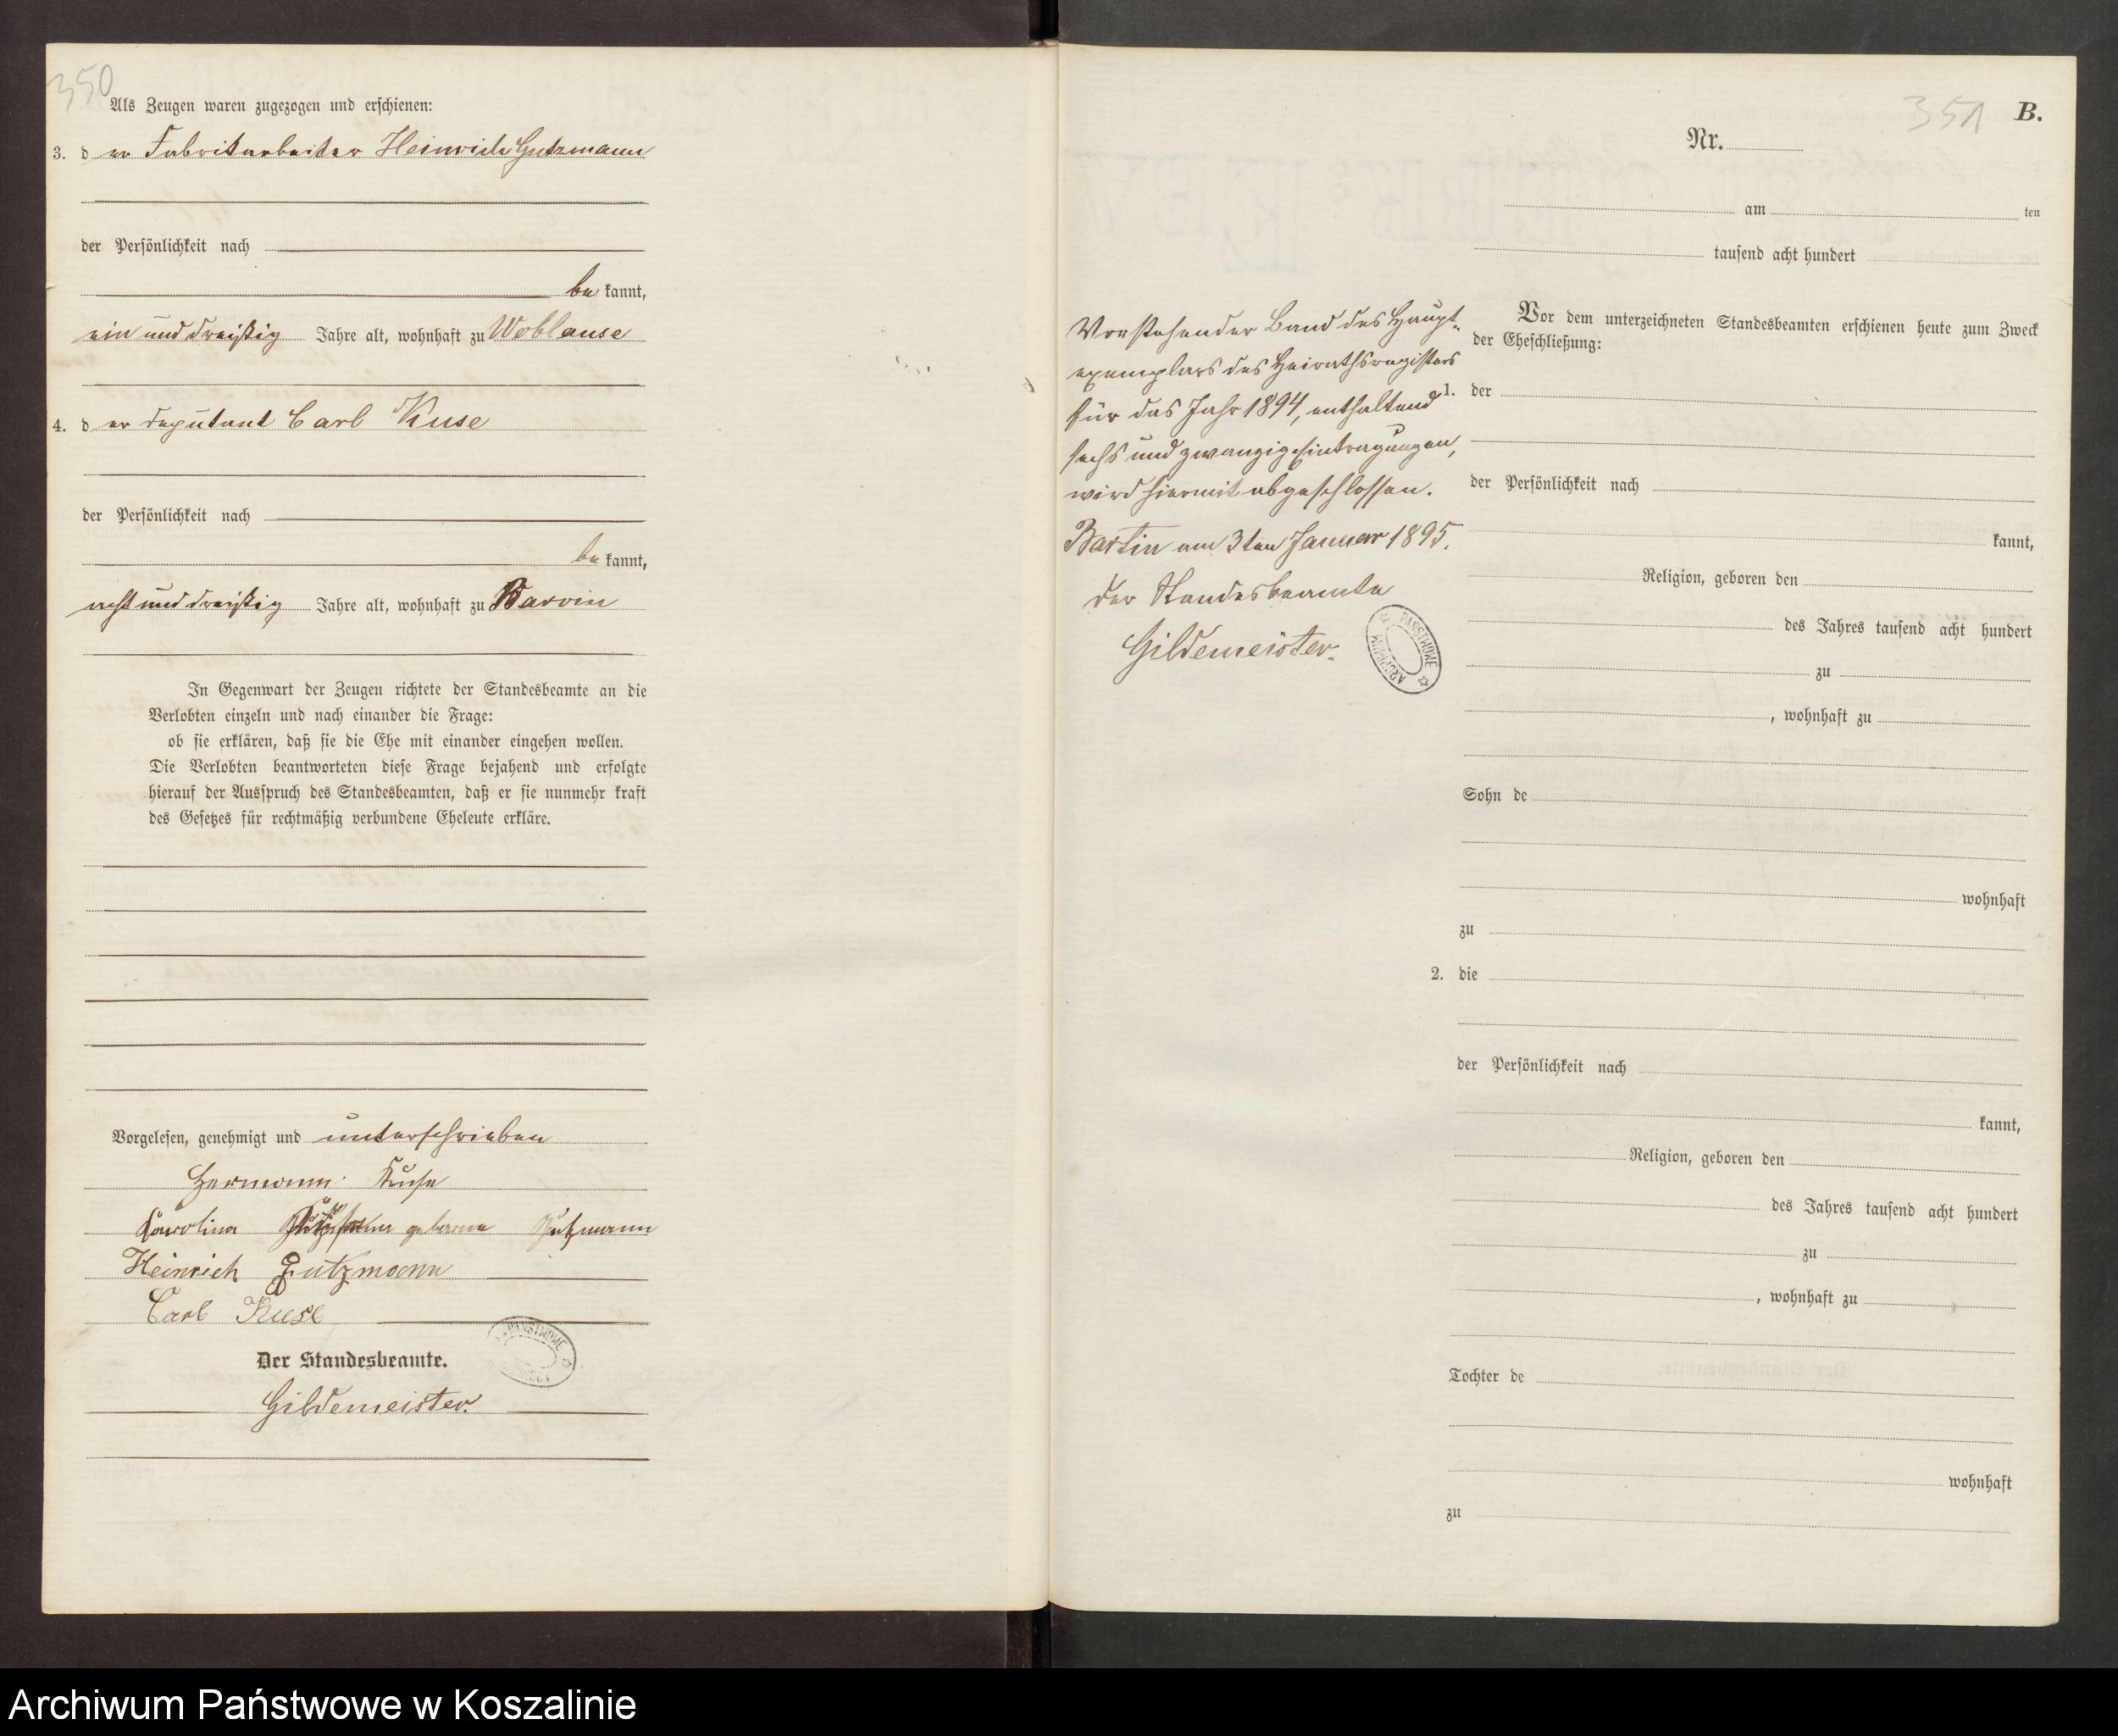 350
Als Zeugen waren zugezogen und erschienen:
3. der Fabrikarbeiter Heinrich Gutzmann
der Persönlichkeit nach
be kannt,
ein und dreißig Jahre alt, wohnhaft zu Woblanse
4. der Deputant Carl Kuse
der Persönlichkeit nach
be kannt,
acht und dreißig Jahre alt, wohnhaft zu Barvin
In Gegenwart der Zeugen richtete der Standesbeamte an die
Verlobten einzeln und nach einander die Frage:
ob sie erklären, daß sie die Ehe mit einander eingehen wollen.
Die Verlobten beantworteten diese Frage bejahend und erfolgte
hierauf der Ausspruch des Standesbeamten, daß er sie nunmehr kraft
des Gesetzes für rechtmäßig verbundene Eheleute erkläre.
Vorgelesen, genehmigt und unterschrieben
Hermann Kuse
Karolina geborene Gutzmann
Heinrich Gutzmann
Carl Kuse
Der Standesbeamte.
Gildemeister.
Vorstehender Band des Haupt-
exemplars des Heirathsregisters
für das Jahr 1894, enthaltend
sechs und zwanzig Eintragungen,
wird hiermit abgeschlossen.
Bartin am 3ten Januar 1895.
Der Standesbeamte
Gildemeister.
ARCHIWUM PAŃSTWOWE
351 B.
Nr.
am ten
tausend acht hundert
Vor dem unterzeichneten Standesbeamten erschienen heute zum Zweck
der Eheschließung:
1. der
der Persönlichkeit nach
kannt,
Religion, geboren den
des Jahres tausend acht hundert
zu
, wohnhaft zu
Sohn de
wohnhaft
zu
2. die
der Persönlichkeit nach
kannt,
Religion, geboren den
des Jahres tausend acht hundert
zu
, wohnhaft zu
Tochter de
wohnhaft
zu
Archiwum Państwowe w Koszalinie